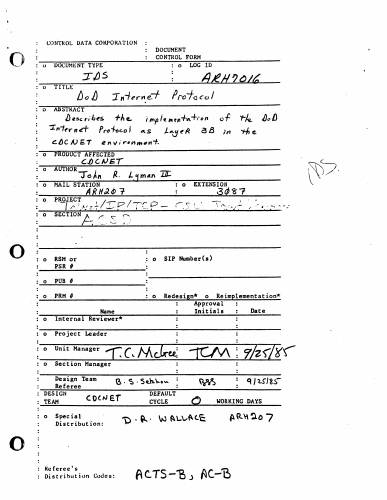 CONTROL DATA CORPORATION
DOCUMENT
CONTROL FORM
o DOCUMENT TYPE : o LOG ID
IDS ARH7016
o TITLE
DoD Internet Protocol
o ABSTRACT
Describes the implementation of the DoD
Internet Protocol as Layer 3B in the
CDCNET environment.
o PRODUCT AFFECTED
CDCNET
o AUTHOR John R. Lyman III
o MAIL STATION : o EXTENSION
ARH207 3087
o PROJECT
o SECTION ACSD
o RSM or : o SIP Number(s)
PSR #
o PUB #
o PRM # : o Redesign* o Reimplementation*
Approval
Name : Initials : Date
o Internal Reviewer*
o Project Leader
o Unit Manager T.C. McGee TCM 9/25/85
o Section Manager
Design Team B. S. 9/25/85
Referee
DESIGN CDCNET DEFAULT
TEAM CYCLE 0 WORKING DAYS
o Special D. R. WALLACE ARH207
Distribution:
Referee's
Distribution Codes: ACTS-B, AC-B